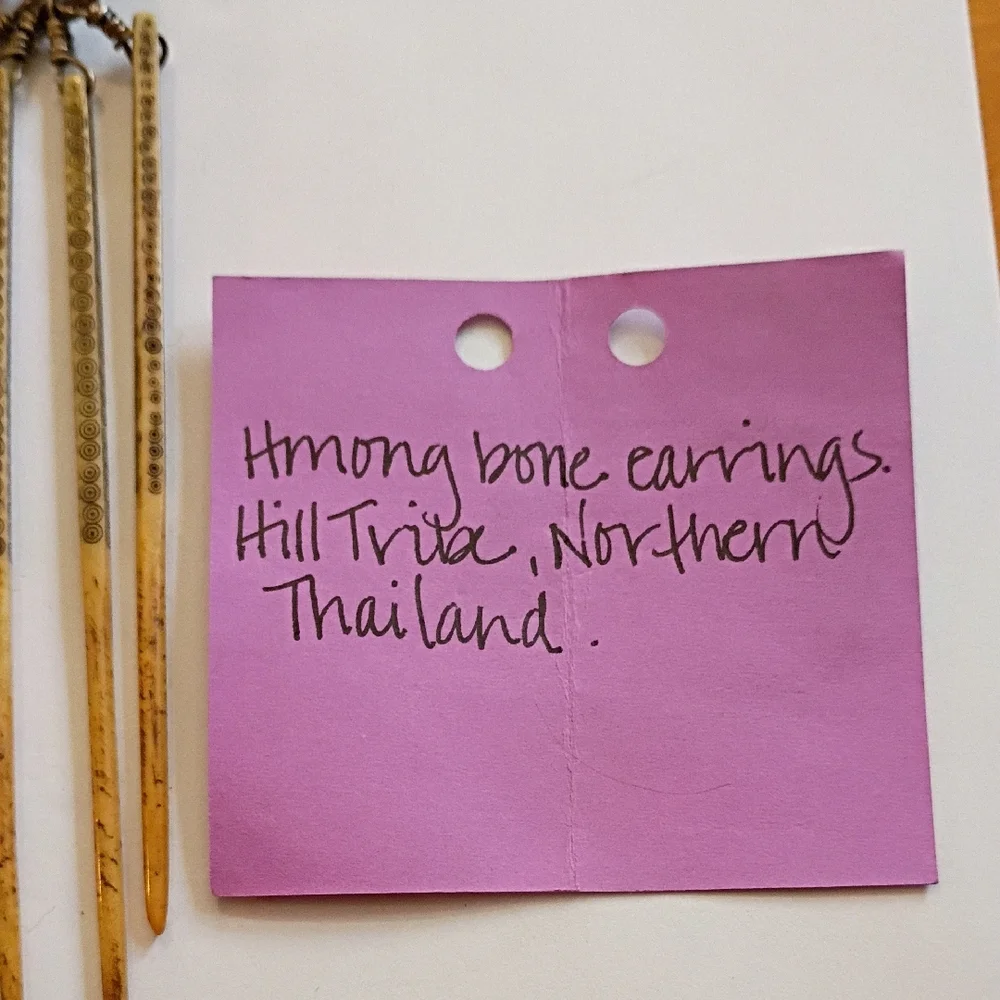 Hmong bone earrings.
Hill Tribe, Northern
Thailand.